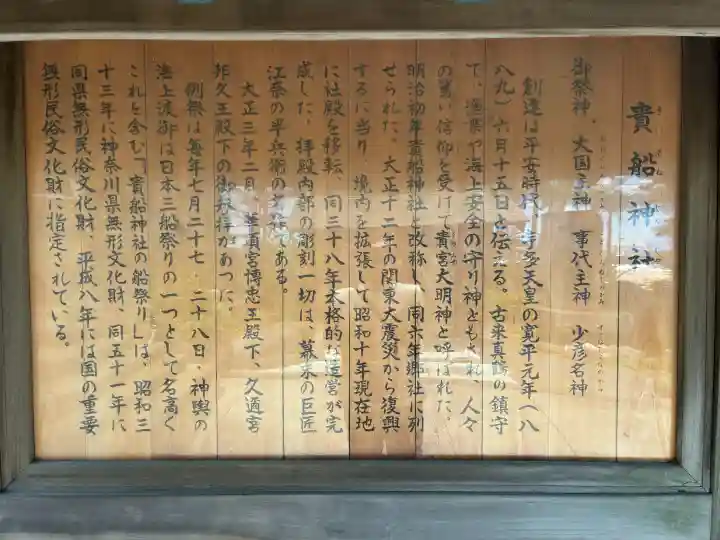 貴船神社
御祭神、大国主神 事代主神 少彦名神
創造は平安時代、宇多天皇の寛平元年(八
八九)六月十五日と伝える。古来真鶴の鎮守
で、漁業や海上安全の守り神ともされ、人々
の篤い信仰を受けて貴宮大明神と呼ばれた。
明治初年貴船神社と改称し、同六年郷社に列
せられた。大正十二年の関東大震災から復興
するに当り、境内を拡張して昭和十年現在地
に社殿を移転、同三十八年本格的な造営が完
成した。拝殿内部の彫刻一切は、幕末の巨匠
江奈の半兵衛の名作である。
大正三年二月、華頂宮博忠王殿下、久邇宮
邦久王殿下の御参拝があった。
例祭は毎年七月二十七・二十八日、神輿の
海上渡御は日本三船祭りの一つとして名高く
これを含む「貴船神社の船祭り」は、昭和三
十三年に神奈川県無形文化財、同五十一年に
同県無形民俗文化財、平成八年には国の重要
無形民俗文化財に指定されている。